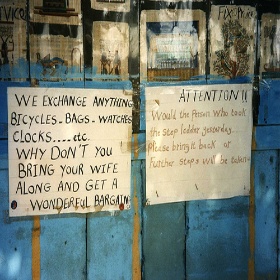 WE EXCHANGE ANYTHING
BICYCLES - BAGS - WATCHES
CLOCKS.....etc.
WHY DON'T YOU
BRING YOUR WIFE
ALONG AND GET A
WONDERFUL BARGAIN
ATTENTION!!
Would the person who took
the step ladder yesterday
Please bring it back or
further steps will be taken